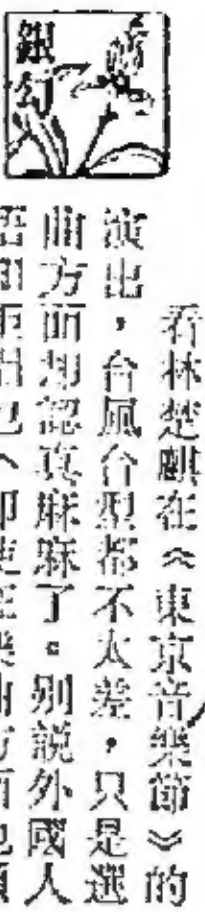 銀幻
看林楚麒在《東京音樂節》的
演出，台風台型都不太差，只是選
曲方面却認真麻麻了。别説外國人